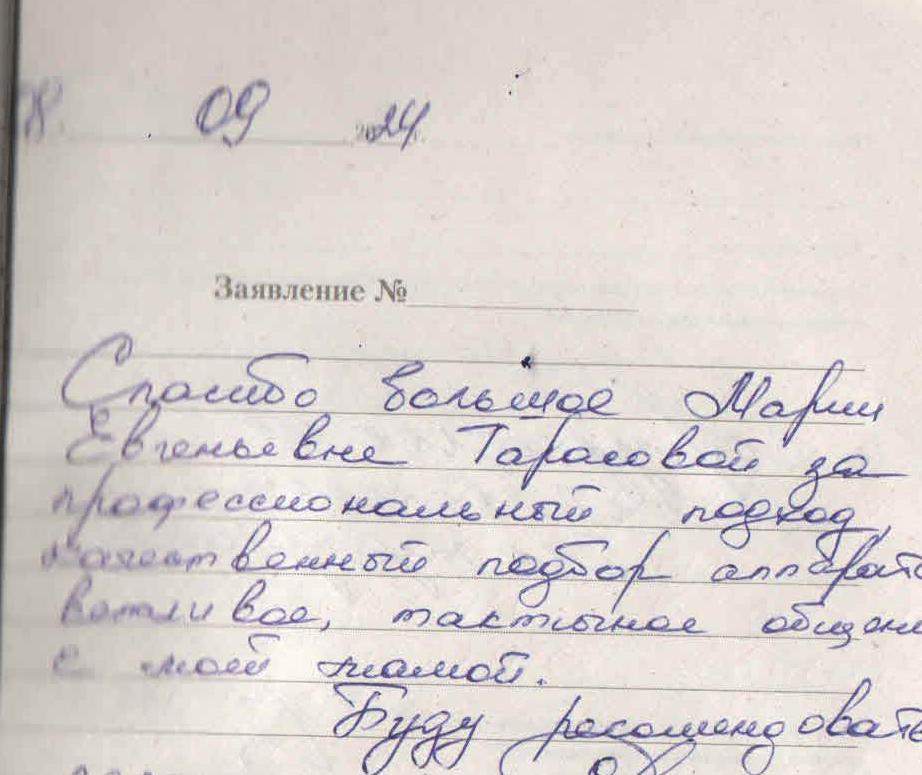 09 2024г.
Заявление №
Спасибо большое Марии
Евгеньевне Тарасовой за
профессиональный подход,
качественный подбор аппарата
вежливое, тактичное общени
с моей мамой.
Буду рекомендовать